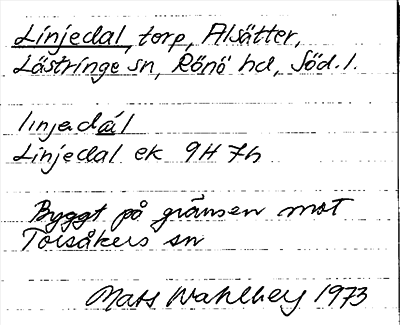 Linjedal, torp, Alsätter,
Lästringe sn, Rönö hd, Söd. l.
linjedàl
Linjedal ek 9H 7h
Byggt på gränsen mot
Torsåkers sn
Mats Wahlberg 1973